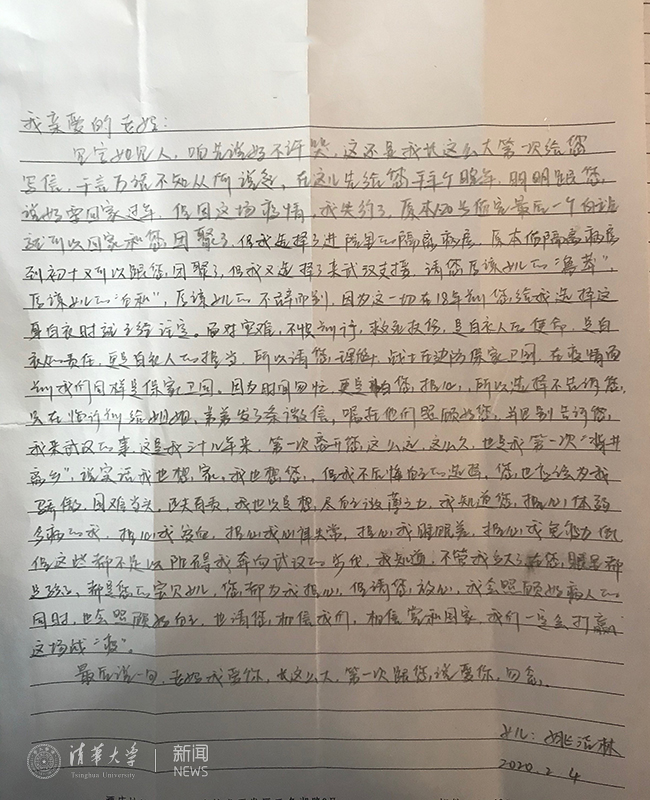 我亲爱的老妈：
见字如见人，咱先说好不许哭，这还是我长这么大第一次给您
写信，千言万语不知从何说起，在这儿先给您拜个晚年，明明跟您
说好要回家过年，但因这场疫情，我失约了，原本初与您定最后一个白班
就可以回家和您团聚了，但我选择了进院里的隔离病房，原本隔离病房
到初十又可以跟您团聚了，但我又选择了来武汉支援，请您原谅女儿的“鲁莽”，
原谅女儿的“自私”，原谅女儿的不辞而别，因为这一切在18年前您给我选择这
身白衣时就已经注定。面对灾难，不惧前行，救死扶伤，是白衣人的使命，是白
衣人的责任，更是白衣人的担当，所以请您理解，战士在边防保家卫国，在疫情面
前我们同样是保家卫国。因为时间匆忙，更是怕您担心，所以选择不告诉您，
只在临行前给姐姐，弟弟发了条微信，嘱托他们照顾好您，并且别告诉您，
我来武汉的事，这是我三十几年来，第一次离开您这么远，这么久，也是我第一次“背井
离乡”，说实话我也想家，我也想您，但我不后悔自己的选择，您也应该为我
骄傲，国难当头，匹夫有责，我也只是想，尽自己微薄之力，我知道您，担心体弱
多病的我，担心我贫血，担心我心律失常，担心我眼睛差，担心我免疫力低
但这些都不足以阻碍我奔向武汉的步伐，我知道，不管我多大了，在您眼里都
是孩子，都是您的宝贝女儿，您都为我担心，但请您放心，我会照顾好病人的
同时，也会照顾好自己，也请您相信我们，相信党和国家，我们一定会打赢
这场战“疫”。
最后说一句，老妈我爱你，长这么大，第一次跟您说爱你，勿念，
女儿：姚洁林
2020.2.4
清华大学
Tsinghua University
新闻
NEWS